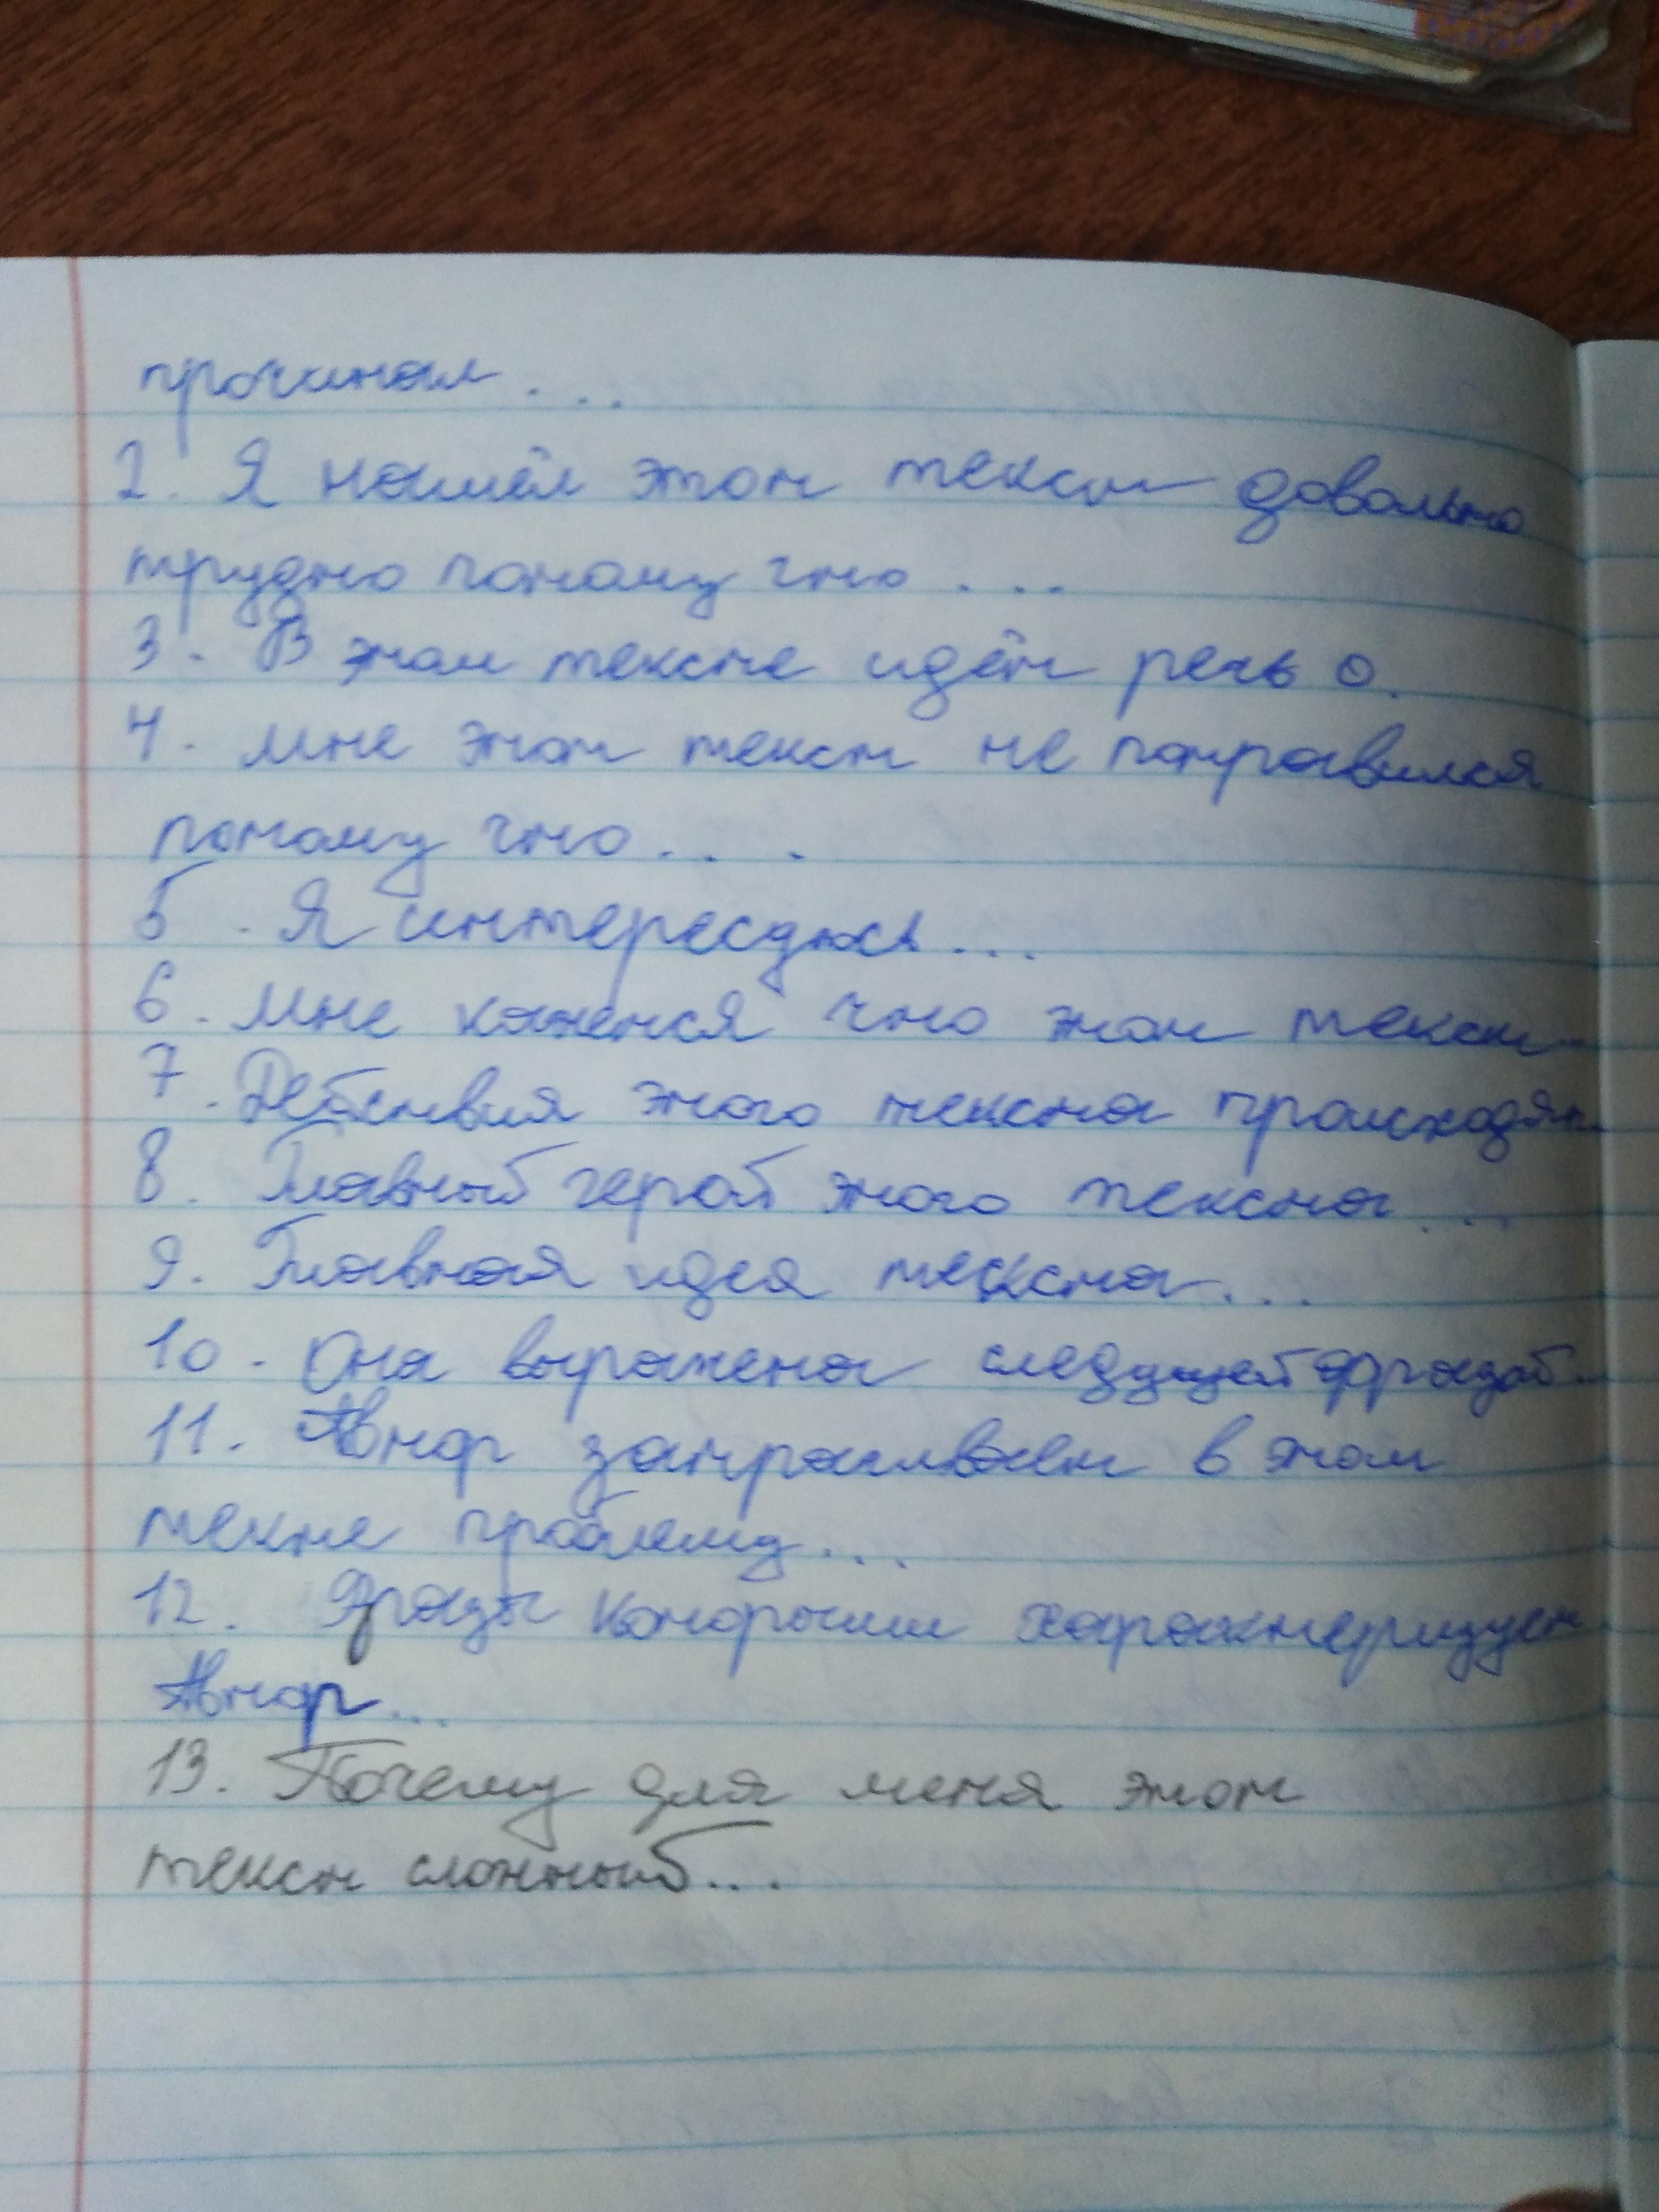 прочитал ...
2. Я нашёл этот текст довольно
трудно потому что ...
3. В этом тексте идёт речь о.
4. Мне этот текст не понравился
потому что...
5. Я интересуюсь...
6. Мне кажется что этот текст...
7. Действия этого текста происходят..
8. Главный герой этого текста...
9. Главная идея текста...
10. Она выражена следущей фразой..
11. Автор запрашивает в этом
текте проблему...
12. Фразы которыми характеризует
Автор...
13. Почему для меня этот
текст сложный...